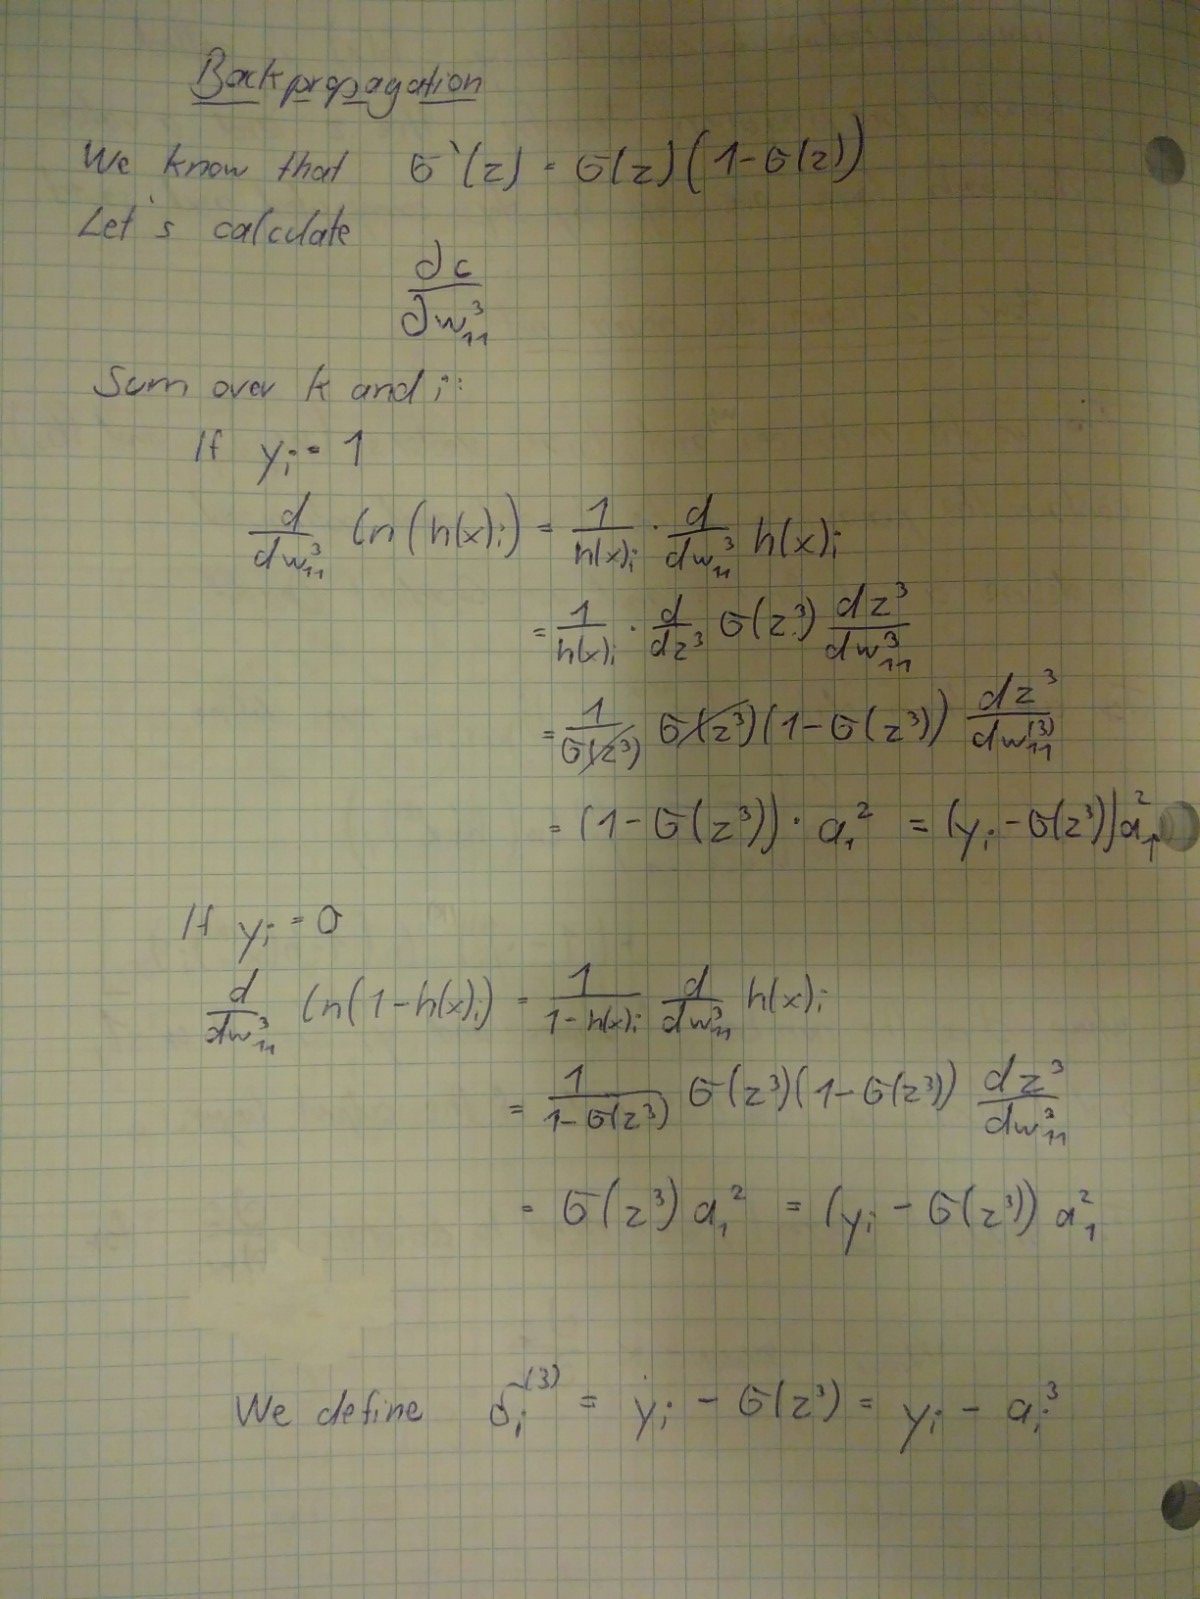 Backpropagation
We know that σ'(z) = σ(z)(1-σ(z))
Let's calculate
∂c/∂w₁₁³
Sum over k and i:
If yᵢ = 1
d/dw₁₁³ ln(h(x)ᵢ) = 1/h(x)ᵢ · d/dw₁₁³ h(x)ᵢ
= 1/h(x)ᵢ · d/dz³ σ(z³) dz³/dw₁₁³
= 1/σ(z³) σ(z³)(1-σ(z³)) dz³/dw₁₁⁽³⁾
= (1-σ(z³)) · a₁² = (yᵢ - σ(z³)) a₁²
If yᵢ = 0
d/dw₁₁³ ln(1-h(x)ᵢ) = 1/(1-h(x)ᵢ) d/dw₁₁³ h(x)ᵢ
= 1/(1-σ(z³)) σ(z³)(1-σ(z³)) dz³/dw₁₁³
= σ(z³) a₁² = (yᵢ - σ(z³)) a₁²
We define δᵢ⁽³⁾ = yᵢ - σ(z³) = yᵢ - aᵢ³